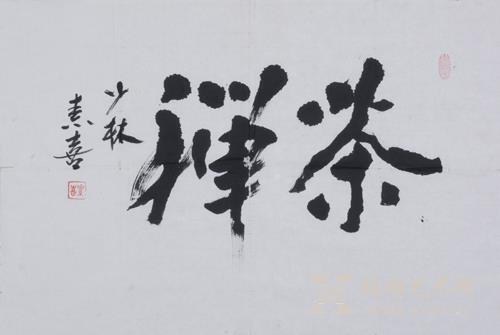 茶禅
少林
素喜